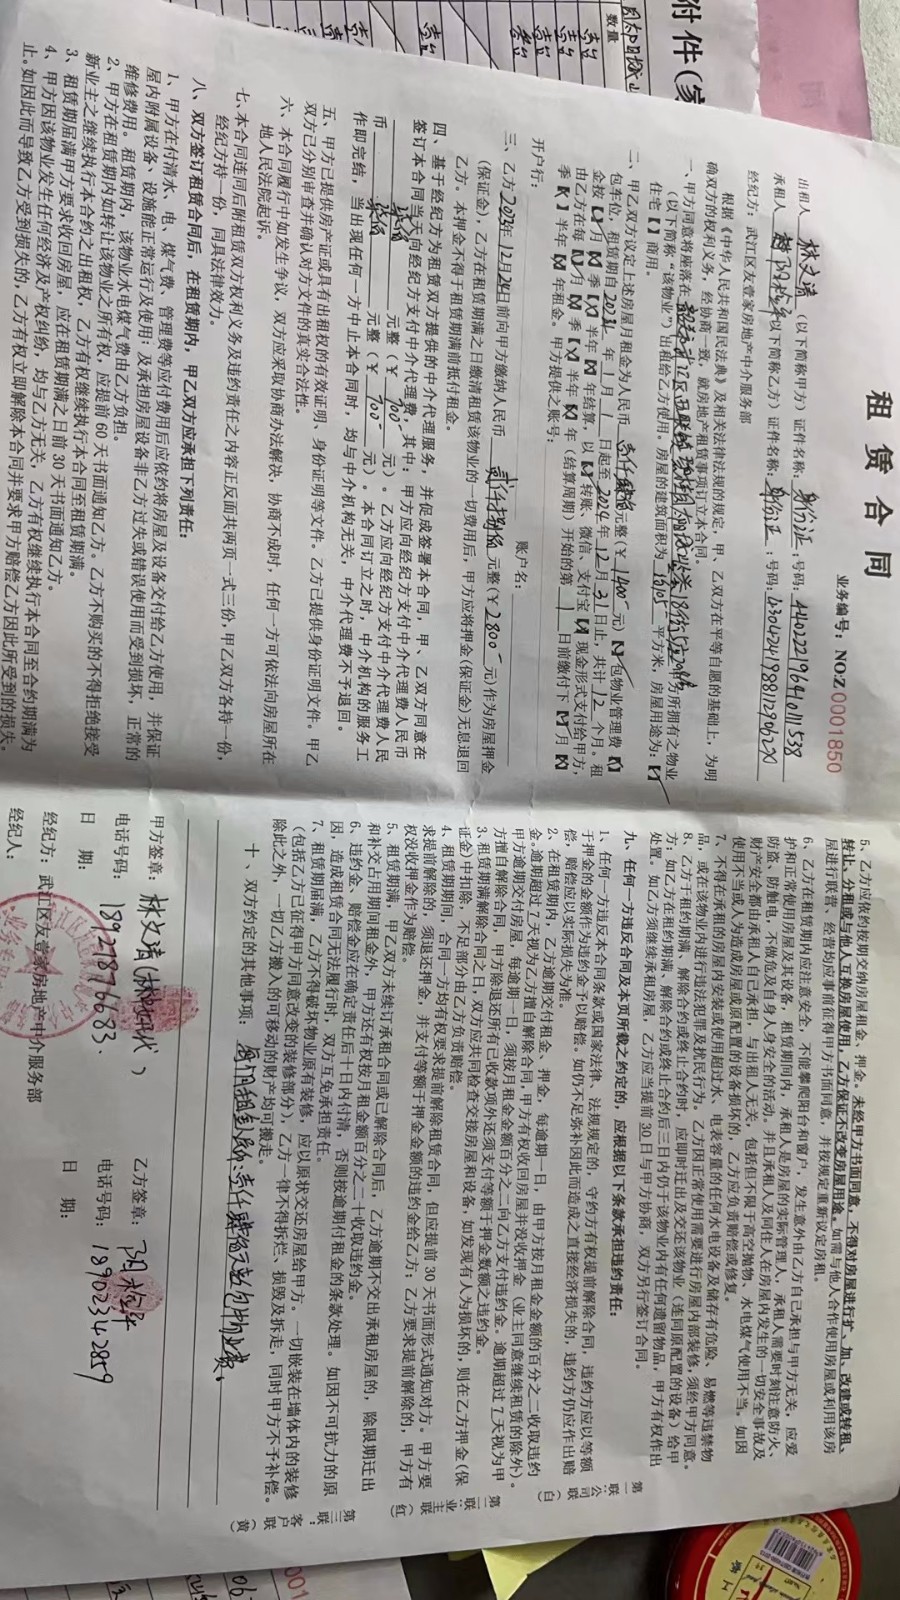 附件(家
数量
租赁合同
业务编号：NOZ 0001850
出租人 林文清 （以下简称甲方）证件名称：身份证：号码：
承租人 （以下简称乙方）证件名称：身份证：号码：
经纪方：武江区友壹家房地产中介服务部
根据《中华人民共和国民法典》及相关法律法规的规定，甲、乙双方在平等自愿的基础上，为明
确双方的权利义务，经协商一致，就房地产租赁事项订立本合同。
一、甲方同意将座落在 甲方所拥有之物业
（以下简称“该物业”）出租给乙方使用。房屋的建筑面积为 平方米，房屋用途为：【√】
住宅【 】商用。
二、甲乙双方议定上述房屋月租金为人民币 壹仟肆佰 元整（￥ 1400 元）【√】包物业管理费【 】
包车位，租赁期自 年 1 月 1 日起至 2024 年 12 月 31 日止，共计 12 个月。租
金按【√】月【 】季【 】半年【 】年结算，以【 】转账、微信、支付宝【√】现金形式支付给甲方，
由乙方在每【√】月【 】季【 】半年【 】年（结算周期）开始的第 1 日前缴付下【√】月【 】
季【 】半年【 】年租金。甲方提供之账号：
开户行： 账户名：
三、乙方 2023年12月26日前向甲方缴纳人民币 贰仟捌佰 元整（￥ 2800 元）作为房屋押金
（保证金），乙方在租赁期满之日缴清租赁该物业的一切费用后，甲方应将押金（保证金）无息退回
乙方。本押金不得于租赁期满前抵付租金。
四、基于经纪方为租赁双方提供的中介代理服务，并促成签署本合同，甲、乙双方同意在
签订本合同当天向经纪方支付中介代理费，其中：甲方应向经纪方支付中介代理费人民币
元整（￥ 700 元）。乙方应向经纪方支付中介代理费人民
币 元整（￥ 700 元）。本合同订立之时，中介机构的服务工
作即完结，当出现任何一方中止本合同时，均与中介机构无关，中介代理费不予退回。
五、甲方已提供房产证或具有出租权的有效证明、身份证明等文件。乙方已提供身份证明文件。甲乙
双方已分别审查并确认对方文件的真实合法性。
六、本合同履行中如发生争议，双方应采取协商办法解决，协商不成时，任何一方可依法向房屋所在
地人民法院起诉。
七、本合同连同后附租赁双方权利义务及违约责任之内容正反面共两页一式三份，甲乙双方各持一份，
经纪方持一份，同具法律效力。
八、双方签订租赁合同后，在租赁期内，甲乙双方应承担下列责任：
1、甲方在付清水、电、煤气费、管理费等应付费用后应依约将房屋及设备交付给乙方使用，并保证
屋内附属设备、设施能正常运行及使用；及承担房屋设备非乙方过失或错误使用而受到损坏，正常的
维修费用。租赁期内，该物业水电煤气费由乙方负担。
2、甲方在租赁期内如转让该物业之所有权，应提前60天书面通知乙方。乙方不购买的不得拒绝接受
新业主之继续执行本合约之出租权，乙方有权继续执行本合同至租赁期满。
3、租赁期届满甲方要求收回房屋，应在租赁期满之日前30天书面通知乙方。
4、甲方因该物业发生任何经济及产权纠纷，均与乙方无关，乙方有权继续执行本合同至合约期满为
止。如因此而导致乙方受到损失的，乙方有权立即解除本合同并要求甲方赔偿乙方因此所受到的损失。
5、乙方应依约按期交纳房屋租金、押金，未经甲方书面同意，不得对房屋进行扩、加、改建或转租、
转让、分租或与他人互换房屋使用，乙方保证不改变房屋用途。如需与他人合作使用房屋或利用该房
屋进行联营、经营均应事前征得甲方书面同意，并按规定重新议定房租。
6、乙方在租赁期内应注意安全，不能攀爬阳台和窗户，发生意外由乙方自己承担与甲方无关，应爱
护和正常使用房屋及其设备，租赁期间内，承租人是房屋的实际管理人，承租人需要时刻注意防火、
防盗、防触电，不做危及自身人身安全的活动。并且承租人及同住人在房屋内发生的一切安全事故及
财产安全都由承租人自己承担，与出租人无关，包括但不限于高空抛物，水电煤气使用不当。如因
使用不当或人为造成房屋或原配置的设备损坏的，乙方应负责赔偿或修复。
7、不得在承租的房屋内安装或使用超过水、电表容量的任何水电设备及储存有危险、易燃等违禁物
品，或在该物业内进行违法犯罪及扰民行为。乙方因正常使用需要进行房屋内部装修，须经甲方同意。
8、乙方于租约期满、解除合约或终止合约时，应即时迁出及交还该物业（连同原配置的设备）给甲
方；如乙方在租约期满、解除合约或终止合约后三日内仍于该物业内有任何遗留物品，甲方有权作出
处置。如乙方须继续承租房屋，乙方应当提前30日与甲方协商，双方另行签订合同。
九、任何一方违反合同及本页所载之约定的，应根据以下条款承担违约责任：
1、任何一方违反本合同条款或国家法律、法规规定的，守约方有权提前解除合同，违约方应以等额
于押金的金额作为违约金予以赔偿。如仍不足弥补因此而造成之直接经济损失的，违约方仍应作出赔
偿，赔偿应以实际损失为准。
2、在租赁期内，乙方逾期交付租金、押金，每逾期一日，由甲方按月租金金额的百分之二收取违约
金。逾期超过7天视为乙方擅自解除合同，甲方有权收回房屋并没收押金（业主同意继续租赁的除外）。
甲方逾期交付房屋，每逾期一日，须按月租金金额百分之二向乙方支付违约金。逾期超过7天视为甲
方擅自解除合同，甲方除退还所有已收款项外还须支付等额于押金数额之违约金。
3、租赁期满解除合同之日，双方应共同检查交接房屋和设备，如发现有人为损坏的，则在乙方押金（保
证金）中扣除，不足部分由乙方负责赔偿。
4、租赁期期间，合同一方均有权要求提前解除租赁合同，但应提前30天书面形式通知对方。甲方要
求提前解除的，须退还押金，并支付等额于押金金额的违约金给乙方；乙方要求提前解除的，甲方有
权没收押金作为赔偿。
5、租赁期满，甲乙双方未续订承租合同或已解除合同后，乙方逾期不交出承租房屋的，除限期迁出
和补交占用期间租金外，甲方还有权按月租金额百分之二十收取违约金。
6、违约金、赔偿金应在确定责任后十日内付清，否则按逾期付租金的条款处理。如因不可抗力的原
因，造成租赁合同无法履行时，双方互免承担责任。
7、租赁期届满，乙方不得破坏物业原有装修，应以原状交还房屋给甲方。一切嵌装在墙体内的装修
（包括乙方已征得甲方同意改变的装修部分），乙方一律不得拆烂、损毁及拆走，同时甲方不予补偿。
除此之外，一切乙方搬入的可移动的财产均可搬走。
十、双方约定的其他事项：每月租金人民币：壹仟肆佰元整包物业费。
甲方签章：林文清 乙方签章：
电话号码： 电话号码：18902342859
日期： 日期：
经纪方：武江区友壹家房地产中介服务部
经纪人：
第一联：公司联（白）
第二联：业主联（红）
第三联：客户联（黄）
001